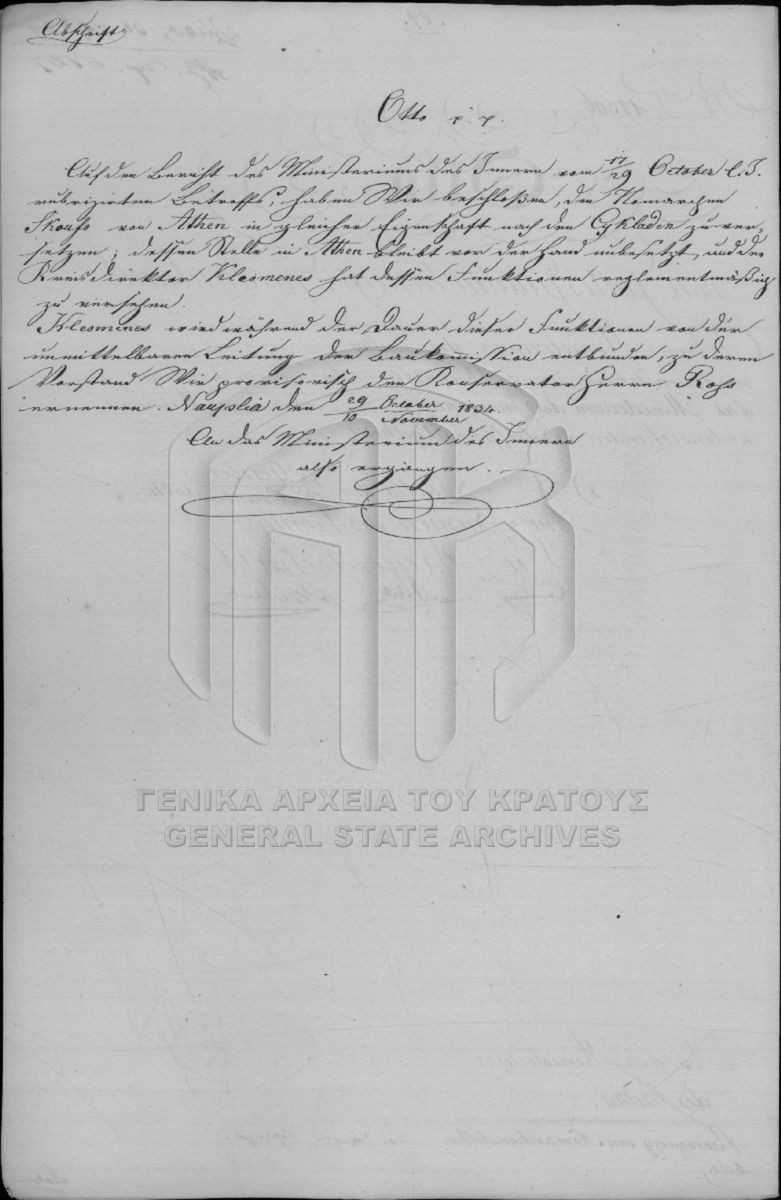 Abschrift
Otto p. p.
Auf den Bericht des Ministeriums des Innern vom 17/29 October l. J.
rubrizirten Betreffs, haben Wir beschloßen, den Nomarchen
Skoufo von Athen in gleicher Eigenschaft nach den Cykladen zu ver-
setzen; dessen Stelle in Athen bleibt vor der Hand unbesetzt, und der
Kreisdirektor Kleomenes hat dessen Funktionen reglementmäßig
zu versehen.
Kleomenes wird während der Dauer dieser Funktionen von der
unmittelbaren Leitung der Baukommission entbunden, zu deren
Vorstand Wir provisorisch den Konservator Herrn Roß
ernennen. Nauplia den 29 October / 10 November 1834.
An das Ministerium des Innern
also ergangen.
ΓΕΝΙΚΑ ΑΡΧΕΙΑ ΤΟΥ ΚΡΑΤΟΥΣ
GENERAL STATE ARCHIVES